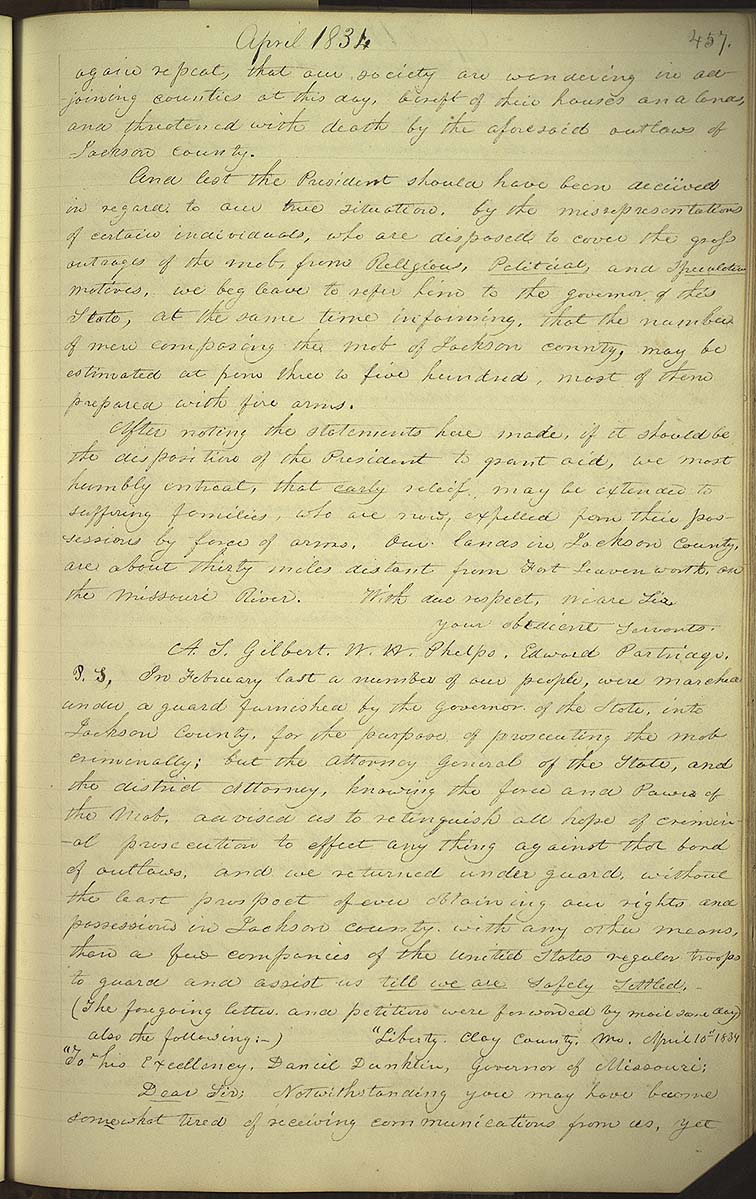 April 1834
457.
again repeat, that our society are wandering in ad-
-joining counties at this day, bereft of their houses and lands,
and threatened with death by the aforesaid outlaws of
Jackson county.
And lest the President should have been deceived
in regard to our true situation, by the misrepresentations
of certain individuals, who are disposed to cover the gross
outrages of the mob, from Religious, Political, and Speculative
motives, we beg leave to refer him to the governor of this
State, at the same time informing, that the number
of men composing the mob of Jackson county, may be
estimated at from three to five hundred, most of them
prepared with fire arms.
After noting the statements here made, if it should be
the disposition of the President to grant aid, we most
humbly entreat, that early relief, may be extended to
suffering families, who are now, expelled from their pos-
sessions by force of arms. Our lands in Jackson County,
are about thirty miles distant from Fort Leavenworth, on
the Missouri River. With due respect, we are Sir
your obedient Servants.
A. S. Gilbert. W. W. Phelps. Edward Partridge.
P. S. In February last a number of our people, were marched
under a guard furnished by the Governor of the State, into
Jackson County, for the purpose of prosecuting the mob
criminally; but the Attorney General of the State, and
the district Attorney, knowing the force and Power of
the Mob, advised us to relinquish all hope of crimin-
-al prosecution to effect any thing against that band
of outlaws, and we returned under guard, without
the least prospect of ever obtaining our rights and
possessions in Jackson county, with any other means,
than a few companies of the United States regular troops
to guard and assist us till we are Safely Settled.-
(The foregoing letter and petition were forwarded by mail same day)
also the following:-) "Liberty. Clay County, Mo. April 10th 1834
"To his Excellency, Daniel Dunklin, Governor of Missouri;
Dear Sir; Notwithstanding you may have become
somewhat tired of receiving communications from us, yet